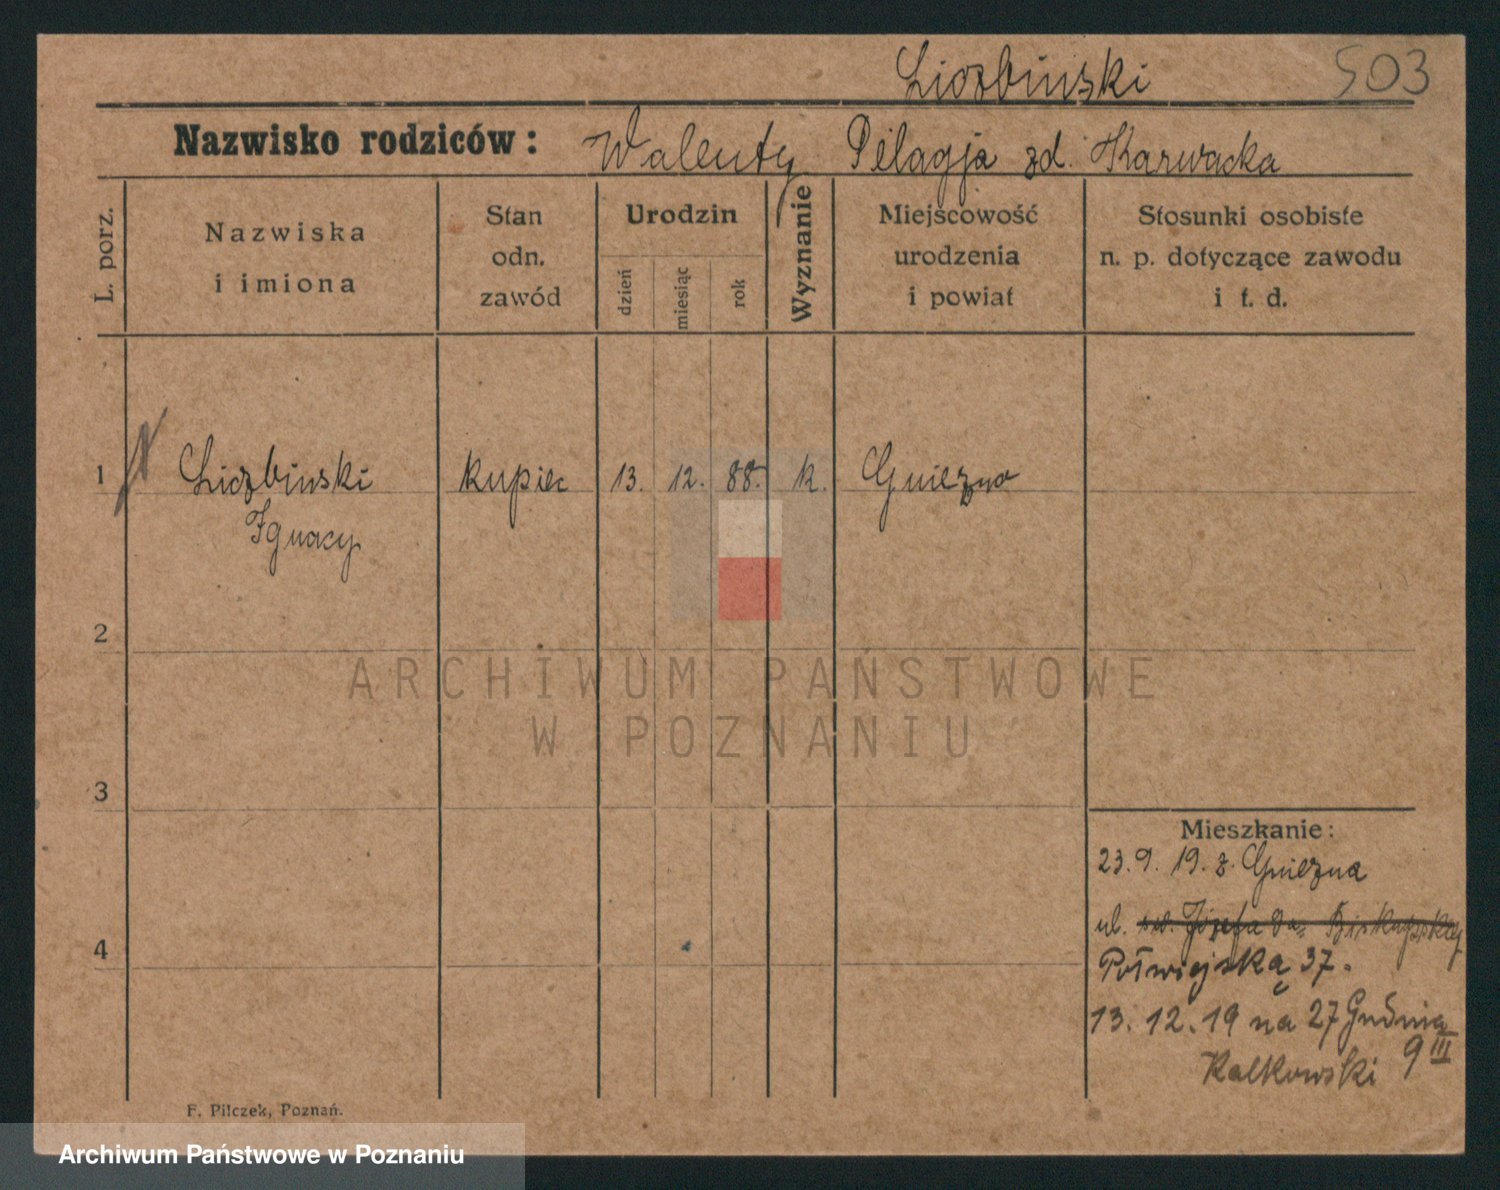 Liczbiński 503
Nazwisko rodziców: Walenty Pelagja zd. Karwacka
L. porz.
Nazwiska
i imiona
Stan
odn.
zawód
Urodzin
dzień
miesiąc
rok
Wyznanie
Miejscowość
urodzenia
i powiat
Stosunki osobiste
n. p. dotyczące zawodu
i t. d.
1 Liczbinski kupiec 13. 12. 88. k. Gniezno
Ignacy
2
ARCHIWUM PAŃSTWOWE
W POZNANIU
3
Mieszkanie:
23. 9. 19. z. Gniezna
ul. św. Józefa
4
Półwiejską 37.
13. 12. 19 na 27 Grudnia
9 III
Kalkowski
F. Pilczek, Poznań.
Archiwum Państwowe w Poznaniu